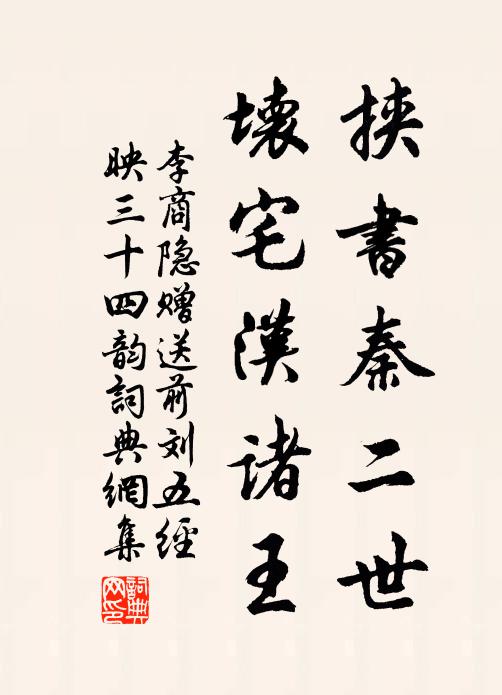 挾書秦二世
壞宅漢諸王
李商隐赠送前刘五經
映三十四韵詞典網集
詞典網印